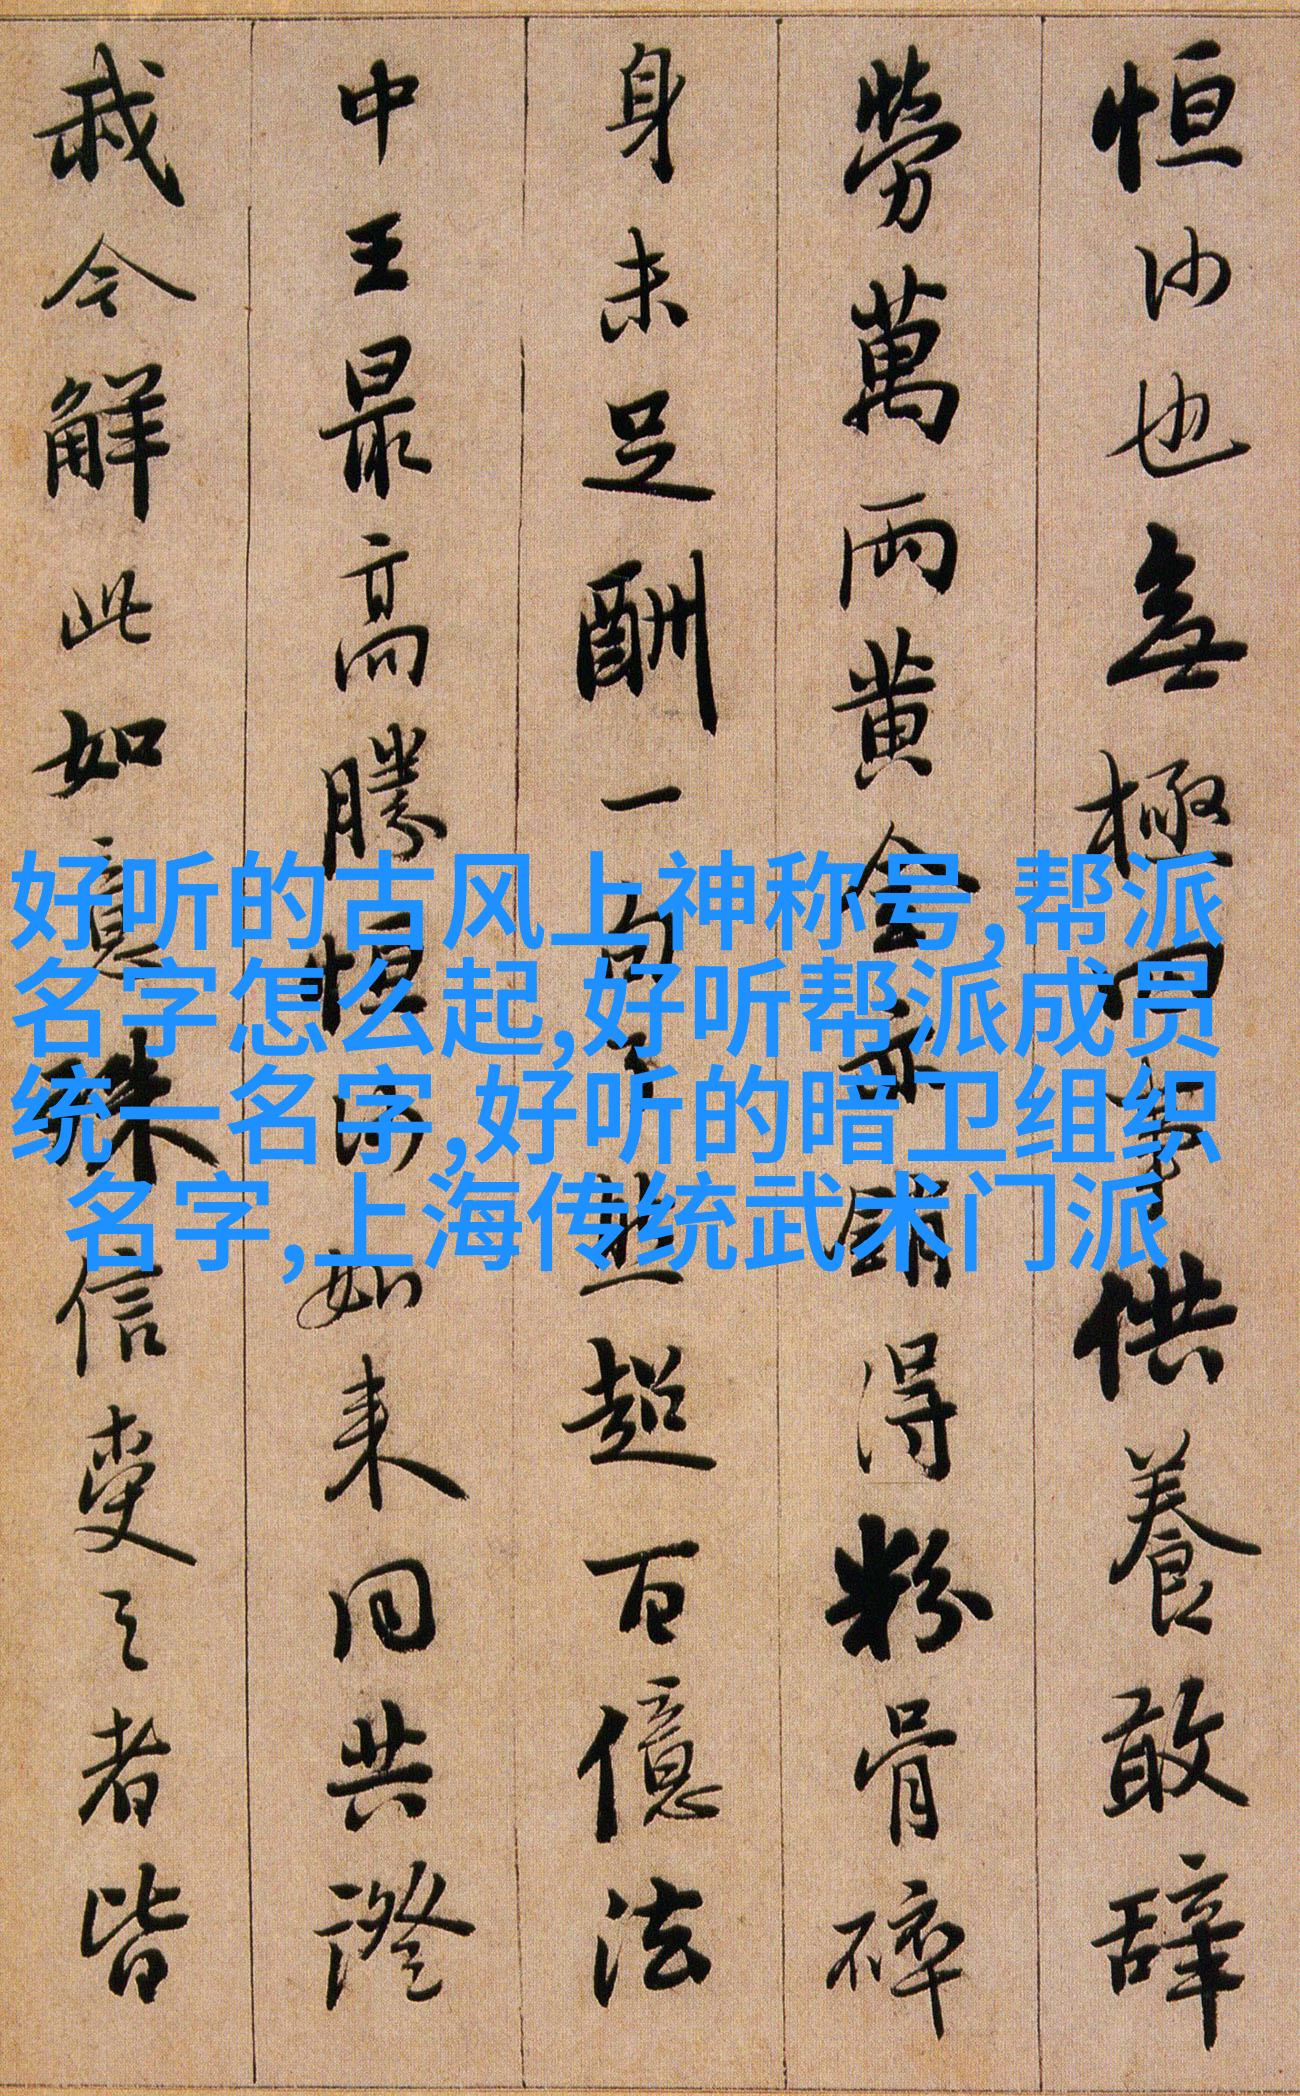 恒沙也無極四事供養敢辞
勞萬兩黄金亦銷得粉骨碎
身未足酬一句了然超百億法
中王最高勝恒沙如来同共證
我今解此如意珠信受之者皆
好听的古风上神称号,帮派
名字怎么起,好听帮派成员
统一名字,好听的暗卫组织
名字,上海传统武术门派